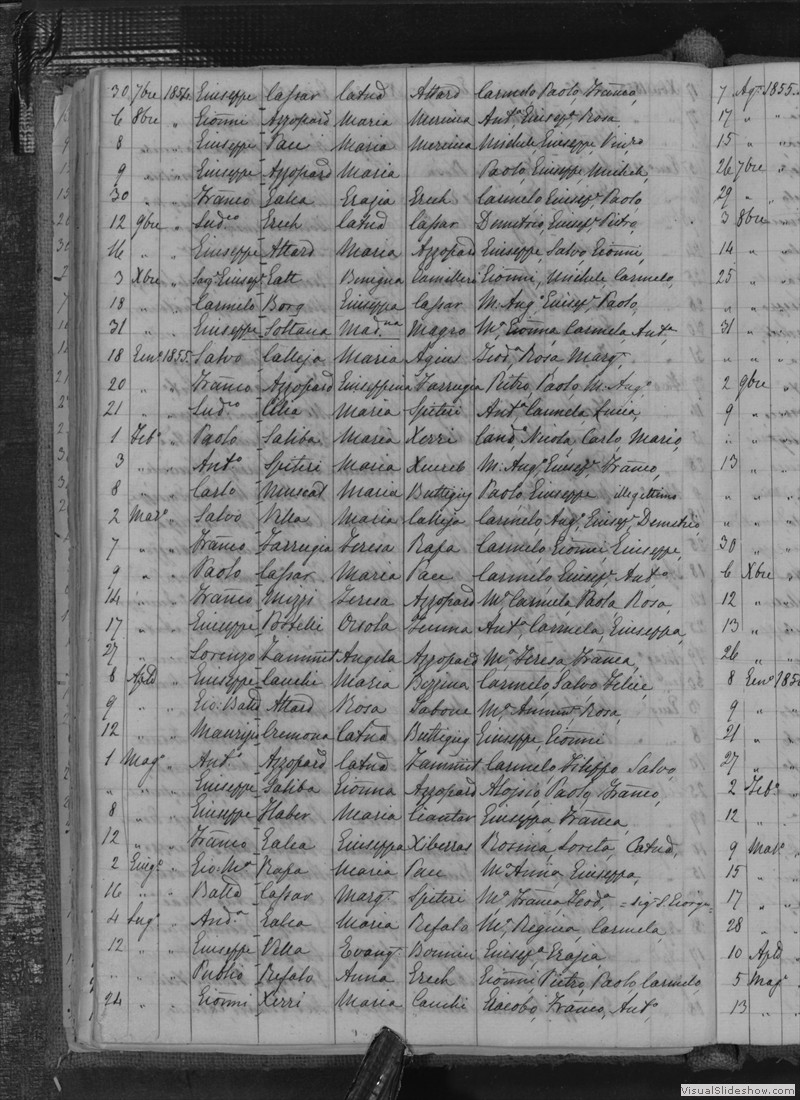 30 7bre 1854. Giuseppe Cassar Catnd Attard Carmelo Paolo, Franco,
6 8bre " Gionni Azzopard Maria Mercieca Anto, Giusepe Rosa
8 " " Giuseppe Pace Maria Mercieca Michele Giuseppe
9 " " Giuseppe Azzopard Maria Paolo, Giuseppe, Michele,
30 " " Franco Galea Grazia Grech Carmelo Giusepe Paolo
12 9bre " Ludco Grech Catnd Cassar Demetrio, Giusepe Pietro,
16 " " Giuseppe Attard Maria Azzopard Giuseppe, Salvo Gionni,
3 Xbre " Giuse Gatt Benigna Camilleri Gionni, Michele Carmelo,
18 " " Carmelo Borg Giuseppa Cassar M. Auga Giusepa Paola,
31 " " Giuseppe Soltana Madna Magro Ma, Gionna, Carmela, Anta,
18 Geno 1855. Salvo Calleja Maria Agius Teoda Rosa Margt,
20 " " Franco Azzopard Giuseppina Farrugia Pietro, Paolo, M. Augo
21 " " Ludco Cilia Maria Spiteri Anta Carmela, Lucia,
1 Febo " Paolo Saliba Maria Xerri Candа, Nicola, Carlo Mario,
3 " " Anto Spiteri Maria Xuereb M. Augo Giusepe Franco,
8 " " Carlo Muscat Maria Buttigieg Paolo Giuseppe illegittimo
2 Maro " Salvo Vella Maria Calleja Carmelo Augo, Giusepe Demetrio,
7 " " Franco Farrugia Teresa Rapa Carmelo, Gionni Giuseppe,
9 " " Paolo Cassar Maria Pace Carmelo Giusepe Anto
14 " " Franco Mizzi Teresa Azzopard Ma Carmela, Paola Rosa,
17 " " Giuseppe Orsola Gemma Anta, Carmela, Giuseppa,
27 " " Lorenzo Zammit Angela Azzopard Ma Teresa, Franca,
8 Aple " Giuseppe Cauchi Maria Bezzina Carmelo, Salvo Felice,
9 " " Gio: Batta Attard Rosa Sabone Ma Annunta Rosa,
12 " " Maurizio Cremona Catnd Buttigieg Giuseppe, Gionni
1 Mago " Anto Azzopard Catnd Zammit Carmelo Filippo Salvo,
" " " Giuseppe Saliba Gionna Azzopard Aloisio, Paolo, Franco,
8 " " Giuseppe Haber Maria Ciantar Giuseppa, Franca,
12 " " Franco Galea Giuseppa Xiberras Rosina, Loreta, Catnd,
2 Giugo " Gio: Ma Rapa Maria Pace Ma Anna, Giuseppa,
16 " " Batta Cassar Margt Spiteri Ma Franca, Teoda
4 Lugo " Anda Galea Maria Refalo Ma Regina, Carmela,
12 " " Giuseppe Vella Evangt Bonnici Giusepa Grazia
" " " Publio Refalo Anna Grech Gionni Pietro, Paolo Carmelo
24 " " Gionni Xerri Maria Cauchi Giacobo, Franco, Anto
7 Ago 1855.
17 " "
15 " "
26 7bre "
29 "
3 8bre "
14 " "
25 " "
" " "
31 " "
" " "
2 9bre "
9 "
" " "
13 " "
" " "
" " "
30 " "
6 Xbre "
12 " "
13 " "
26 " "
8 Geno
9 " "
21 " "
27 " "
2 Febo "
12 "
9 Maro "
15 "
17 "
28 "
10 Aple "
5 Mago "
13 "
VisualSlideshow.com